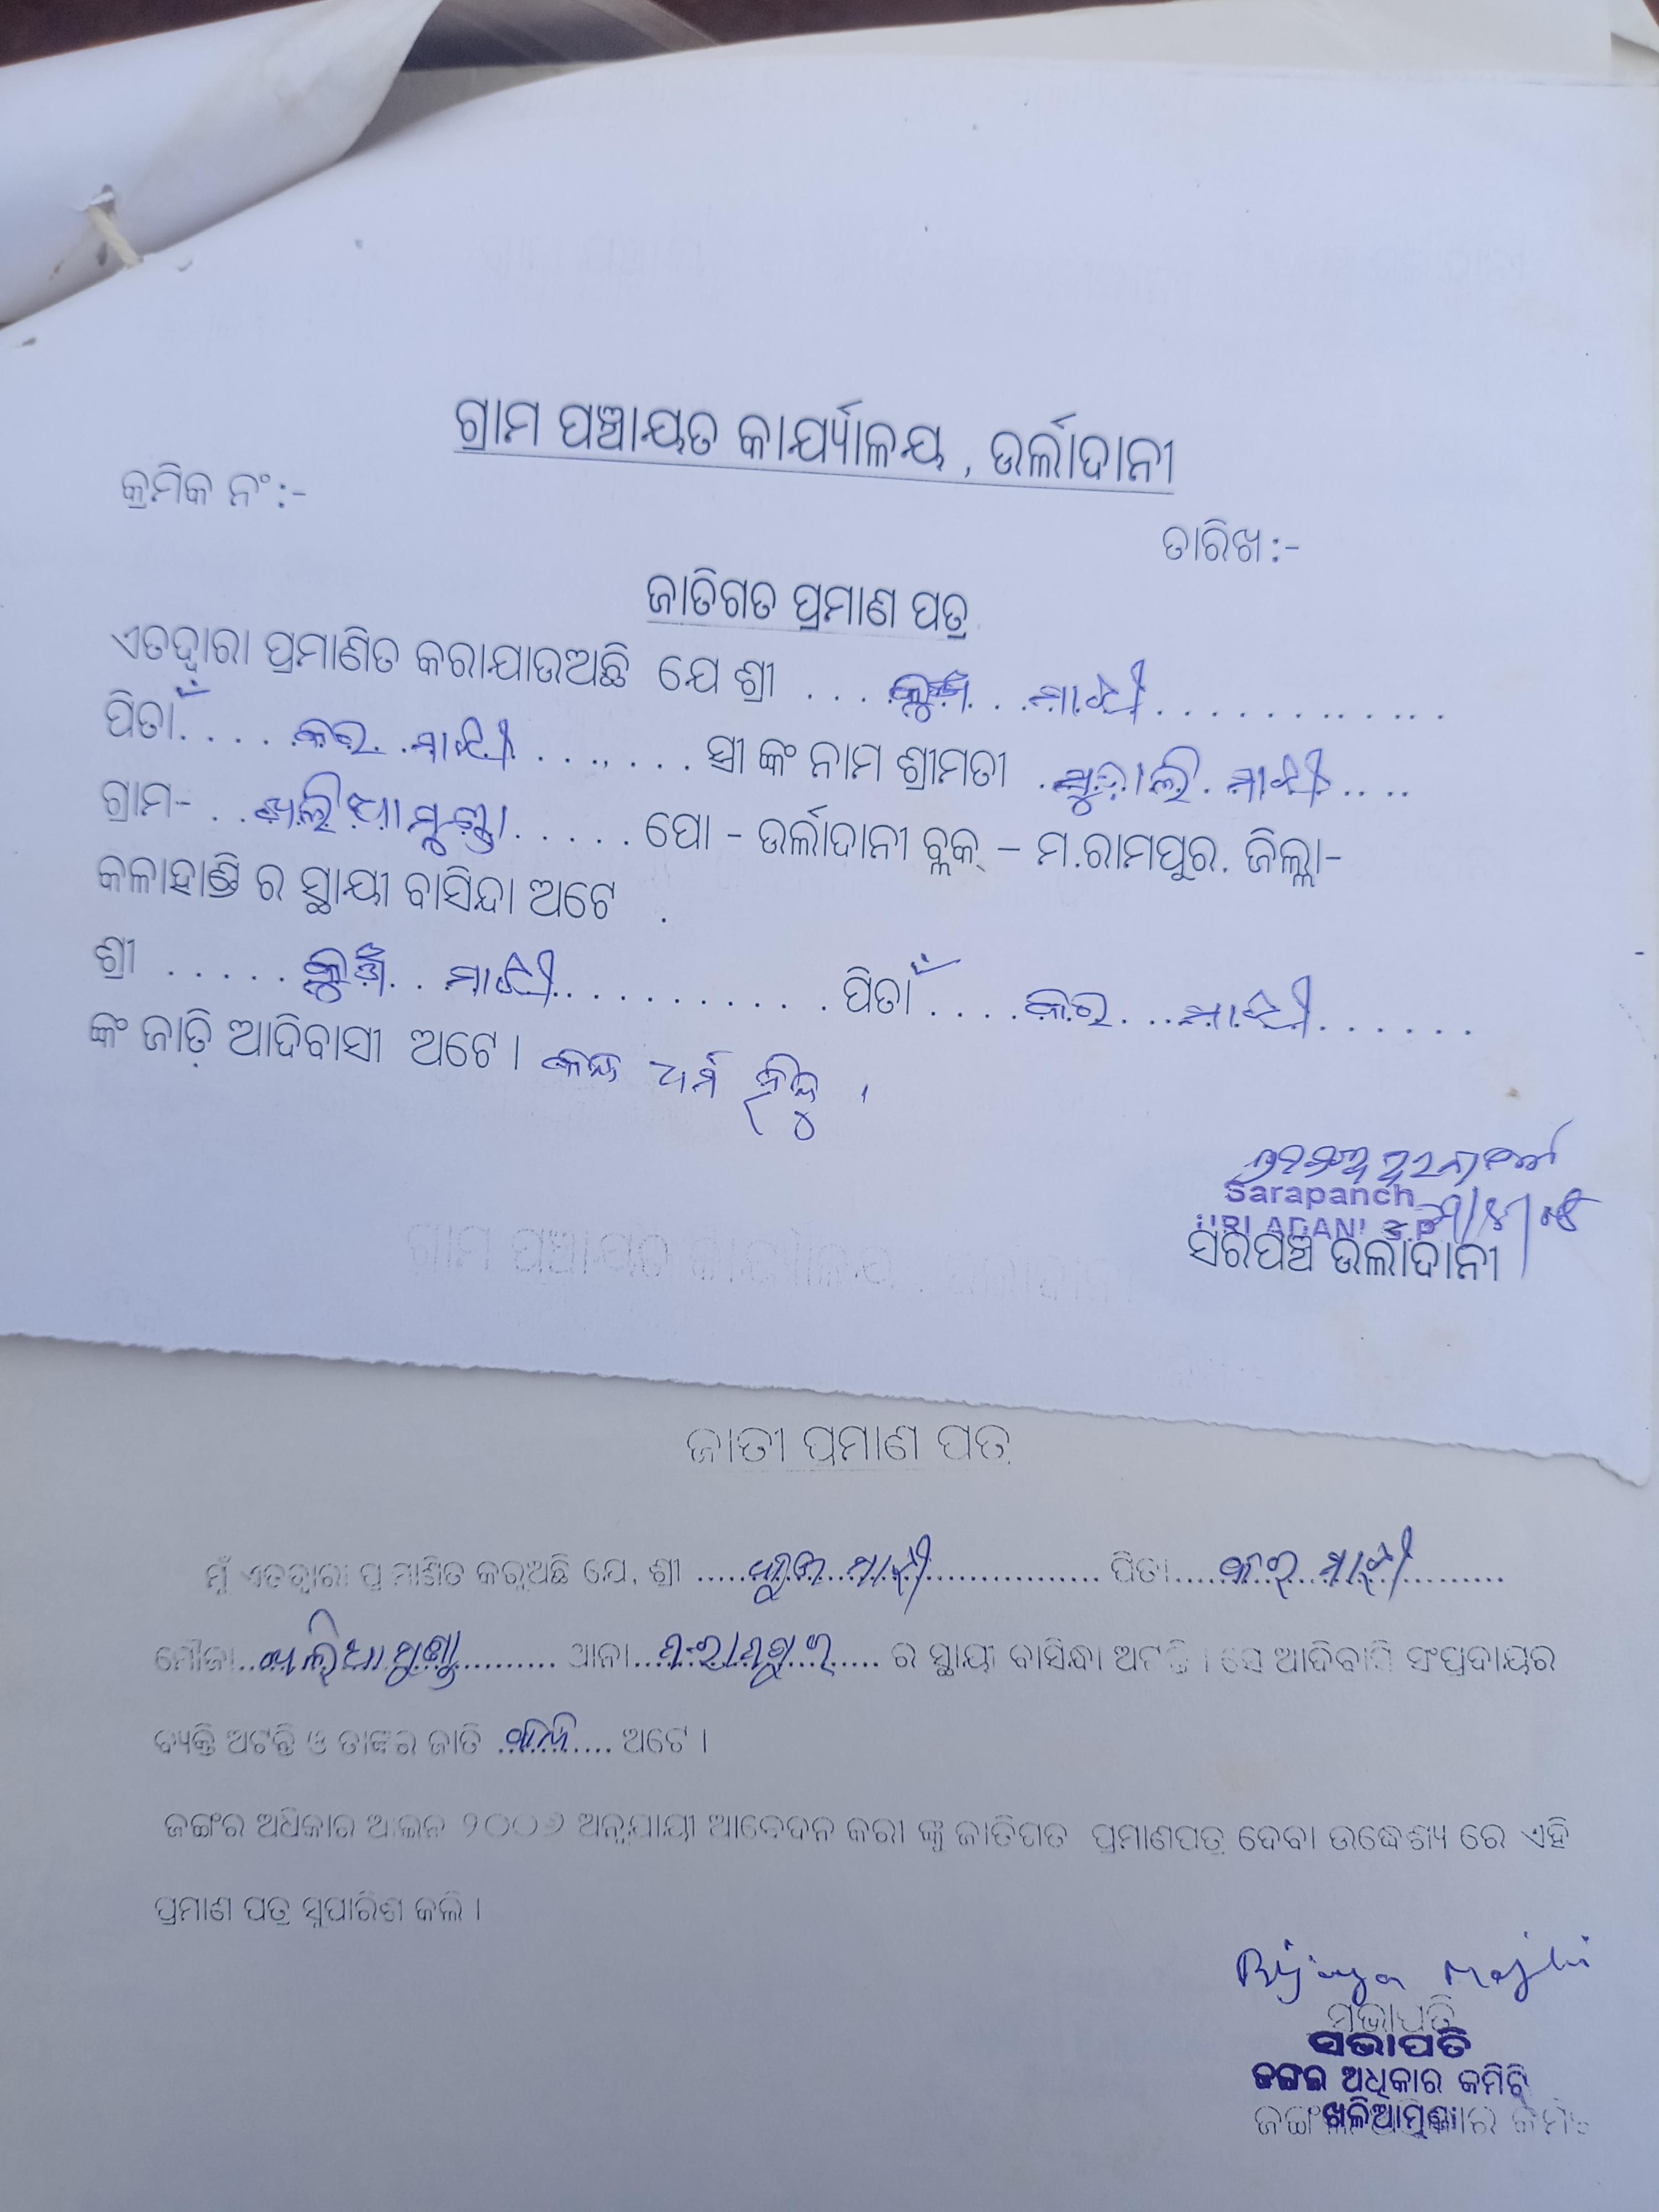 ଗ୍ରାମ ପଞ୍ଚାୟତ କାର୍ଯ୍ୟାଳୟ , ଉର୍ଲାଦାନୀ
କ୍ରମିକ ନଂ:-
ତାରିଖ:-
ଜାତିଗତ ପ୍ରମାଣ ପତ୍ର
ଏତଦ୍ୱାରା ପ୍ରମାଣିତ କରାଯାଉଅଛି ଯେ ଶ୍ରୀ ... ... ମାଝୀ ............
ପିତାଁ..... କର ମାଝୀ ........ ସ୍ତ୍ରୀ ଙ୍କ ନାମ ଶ୍ରୀମତୀ . ମାଝୀ ....
ଗ୍ରାମ- .. ଖଲିଆମୁଣ୍ଡା ...... ପୋ - ଉର୍ଲାଦାନୀ ବ୍ଲକ୍ – ମ.ରାମପୁର. ଜିଲ୍ଲା-
କଳାହାଣ୍ଡି ର ସ୍ଥାୟୀ ବାସିନ୍ଦା ଅଟେ .
ଶ୍ରୀ ...... .. ମାଝୀ ............ ପିତାଁ .... କର ... ମାଝୀ ......
ଙ୍କ ଜାତି ଆଦିବାସୀ ଅଟେ । କନ୍ଧ ଧର୍ମ ହିନ୍ଦୁ ।
Sarapanch
URLADANI G.P
ସରପଞ୍ଚ ଉର୍ଲାଦାନୀ
ଜାତୀ ପ୍ରମାଣ ପତ୍ର
ମୁଁ ଏତଦ୍ୱାରା ପ୍ରମାଣିତ କରୁଅଛି ଯେ, ଶ୍ରୀ ..... ମାଝୀ .............. ପିତା..... କର ମାଝୀ .........
ମୌଜା.. ଖଲିଆମୁଣ୍ଡା .......... ଥାନା... ମ.ରାମପୁର ..... ର ସ୍ଥାୟୀ ବାସିନ୍ଧା ଅଟନ୍ତି । ସେ ଆଦିବାସି ସଂପ୍ରଦାୟର
ବ୍ୟକ୍ତି ଅଟନ୍ତି ଓ ତାଙ୍କର ଜାତି ......... ଅଟେ ।
ଜଙ୍ଗର ଅଧିକାର ଆଇନ ୨୦୦୬ ଅନୁଯାୟୀ ଆବେଦନ କରୀ ଙ୍କୁ ଜାତିଗତ ପ୍ରମାଣପତ୍ର ଦେବା ଉଦ୍ଧେଶ୍ୟ ରେ ଏହି
ପ୍ରମାଣ ପତ୍ର ସୁପାରିଶ କଲି ।
Bijaya Majhi
ସଭାପତି
ସଭାପତି
ଜଙ୍ଗଲ ଅଧିକାର କମିଟି
ଖଲିଆମୁଣ୍ଡା